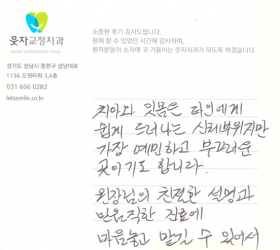 웃자교정치과
소중한 후기 감사드립니다.
함께 할 수 있었던 시간에 감사하며,
환자분들의 소리에 귀 기울이는 웃자치과가 되도록 하겠습니다.
경기도 성남시 중원구 성남대로
1156 도정타워 3,4층
031 606 0282
letssmile.co.kr
치아와 잇몸은 타인에게
쉽게 드러나는 신체부위지만
가장 예민하고 부끄러운
곳이기도 합니다.
원장님의 친절한 설명과
믿음직한 진료에
마음놓고 맡길 수 있어서